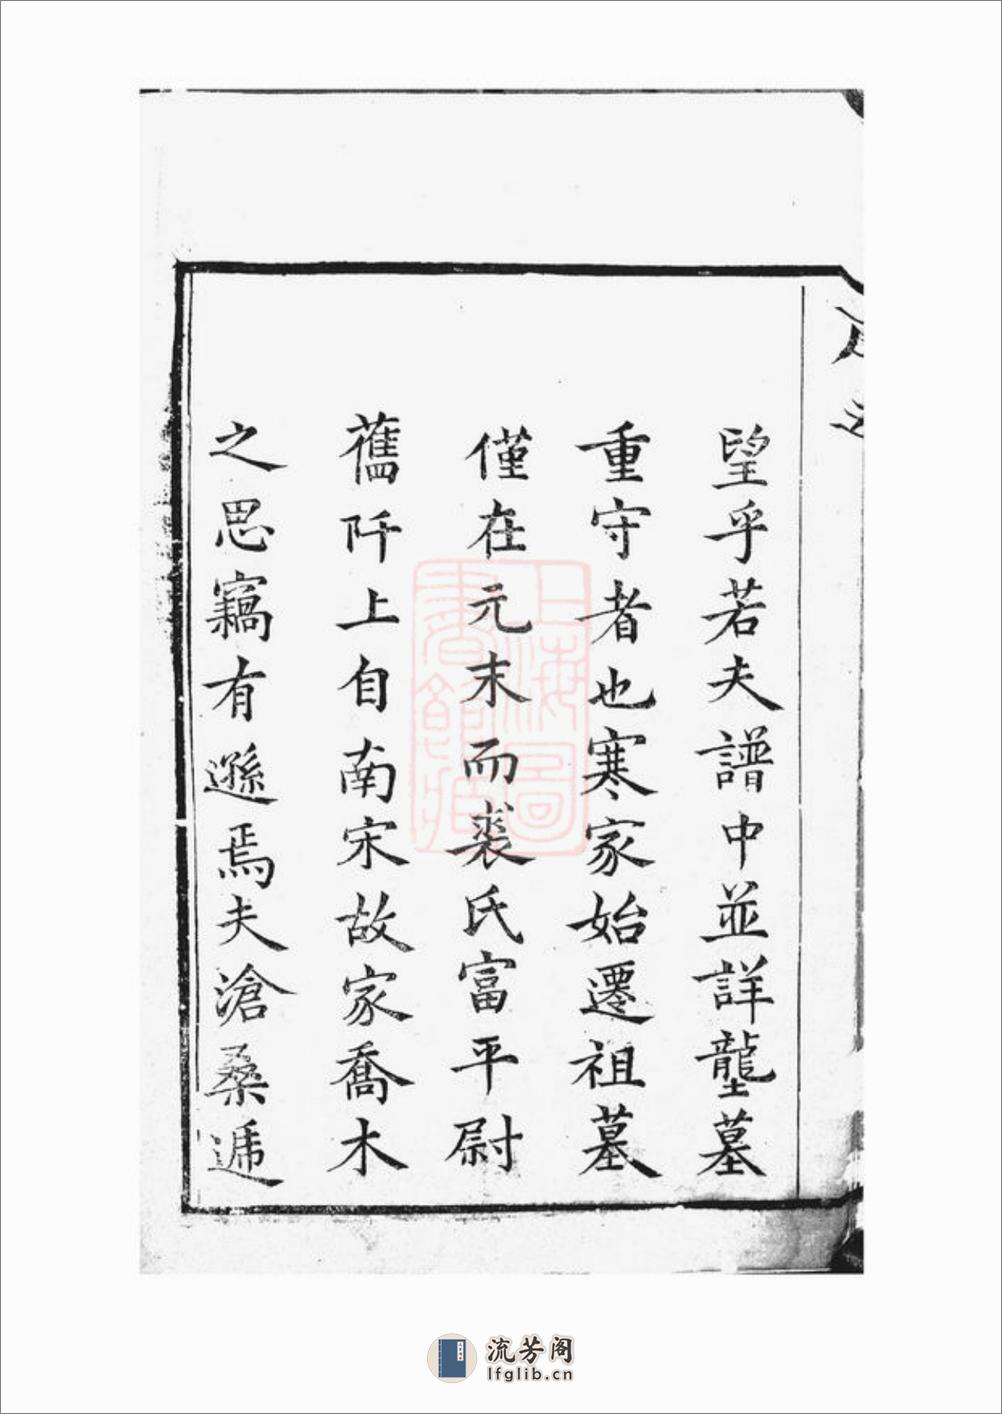 望乎若夫譜中並詳壠墓
重守者也寒家始遷祖墓
僅在元末而裘氏富平尉
舊阡上自南宋故家喬木
之思竊有遜焉夫滄桑遞
上海圖書館藏
流芳阁
lfglib.cn